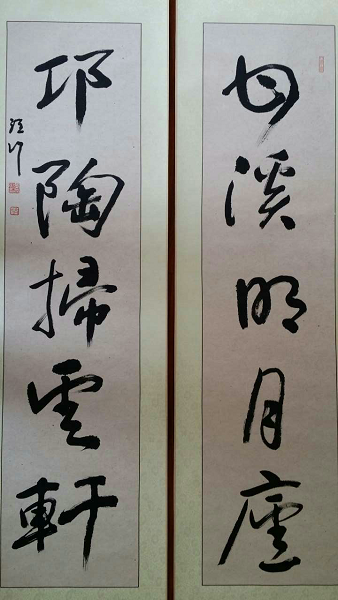 溪明月廬
邛陶掃雲軒